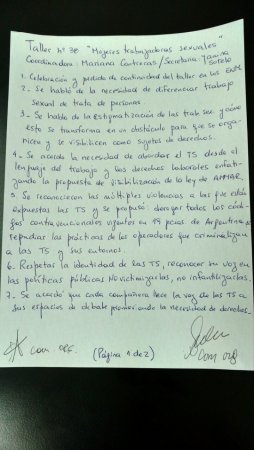 Taller nº 38 "Mujeres trabajadoras sexuales"
Coordinadora: Mariana Contreras/Secretaria: Janina
Sotelo
1. Celebración y pedido de continuidad del taller en los ENM
2. Se habló de la necesidad de diferenciar trabajo
sexual de trata de personas.
3. Se habló de la estigmatización de las trab sex y cómo
esto se transforma en un obstáculo para que se orga-
nicen y se visibilicen como sujetos de derechos.
4. Se acordó la necesidad de abordar el TS desde el
lenguaje del trabajo y los derechos laborales enfati-
zando la propuesta de visibilización de la ley de AMMAR.
5. Se reconocieron las múltiples violencias a las que están
expuestas las TS y se propuso derogar todos los códi-
gos contravencionales vigentes en 19 pcias de Argentina y
repudiar las prácticas de los operadores que criminalizan
a las TS y sus entornos.
6. Respetar la identidad de las TS, reconocer su voz en
las políticas públicas. No victimizarlas, no infantilizarlas.
7. Se acordó que cada compañera lleve la voz de las TS a
sus espacios de debate promoviendo la necesidad de derechos.
com org.
(Página 1 de 2)
Com org